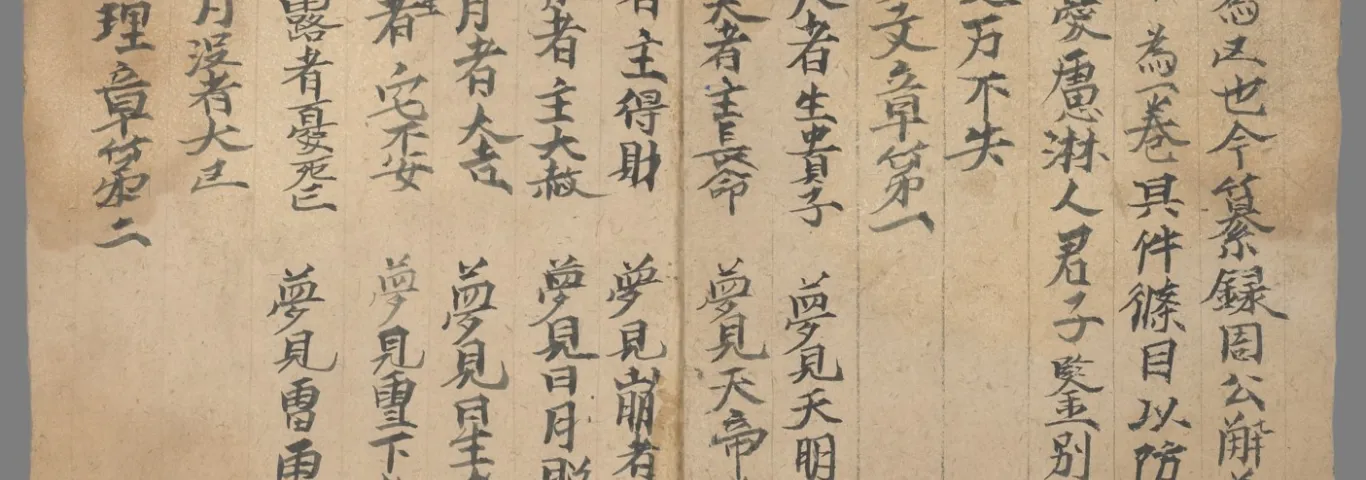 為凶也今纂録周公解
為一卷具件條目以防
蒙慮淋人君子鑒別
万不失
文章第一
者生貴子 夢見天明
者主長命 夢見天帝
者主得財 夢見崩者
者主大赦 夢見日月照
月者大吉 夢見日生
者宅不安 夢見雪下
露者憂死亡 夢見雷雨
月没者大凶
理章第二